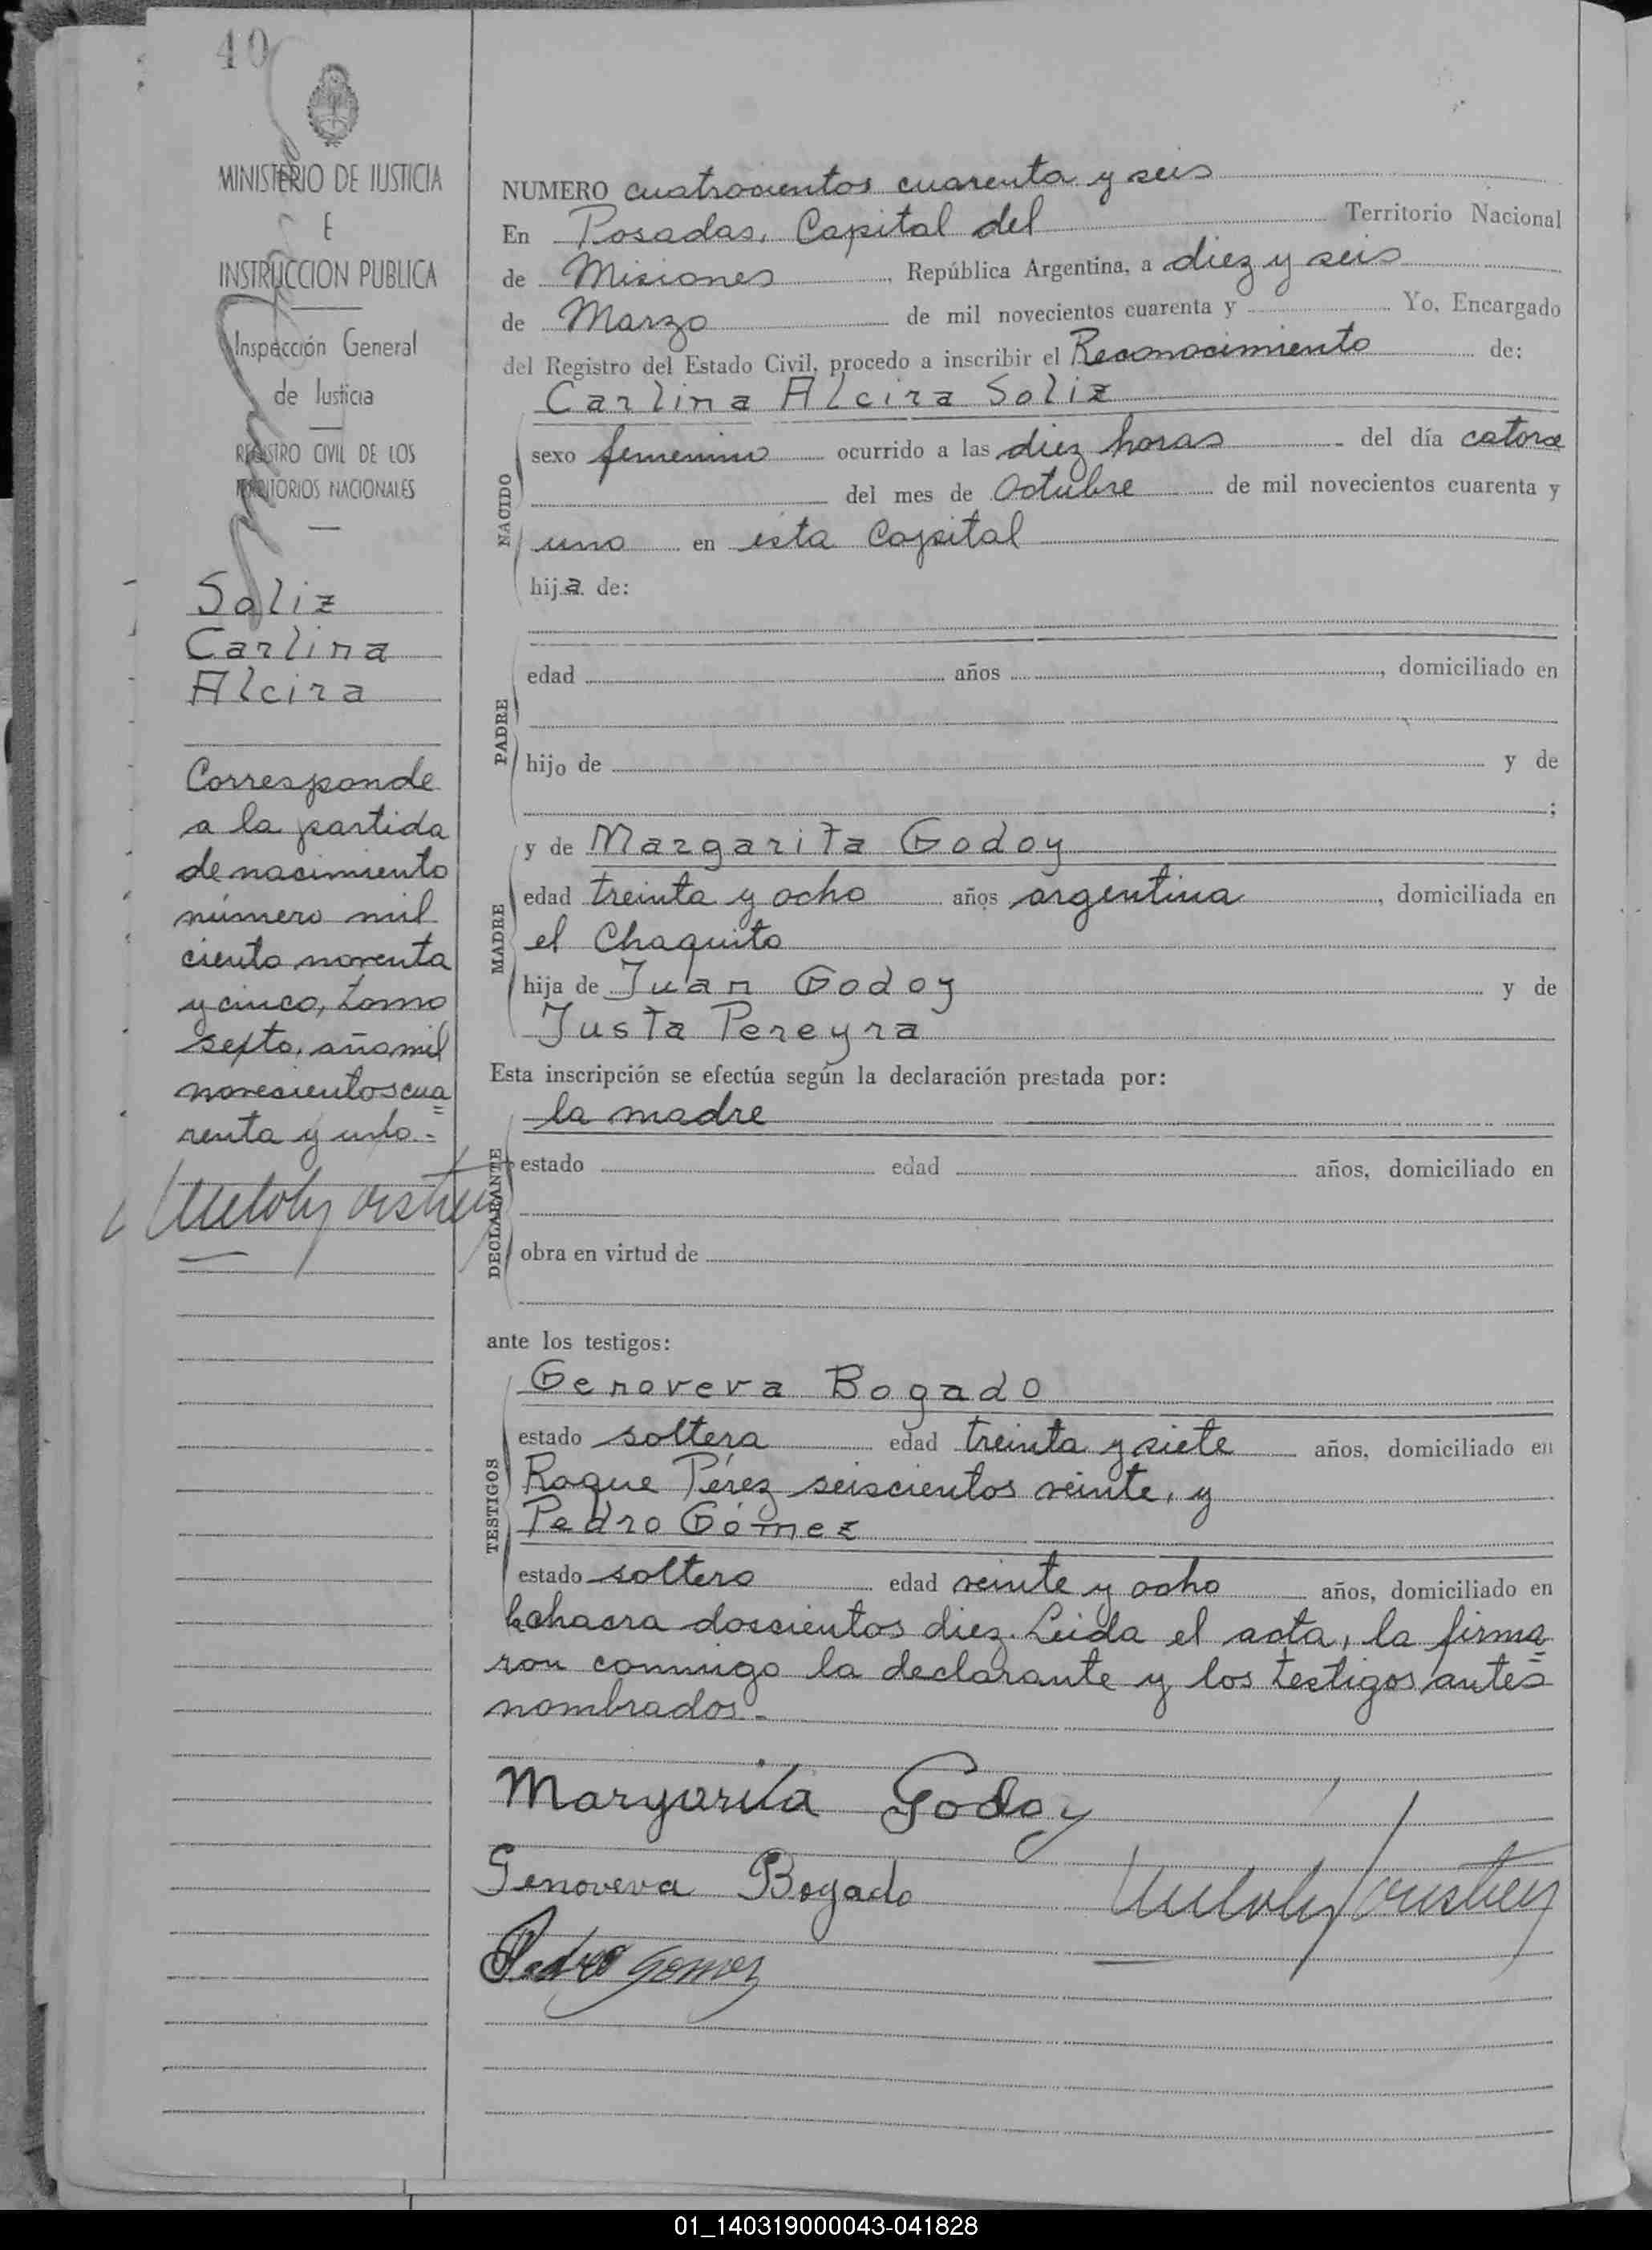 40
MINISTERIO DE JUSTICIA
E
INSTRUCCION PUBLICA
Inspección General
de Justicia
REGISTRO CIVIL DE LOS
TERRITORIOS NACIONALES
Soliz
Carlina
Alcira
Corresponde
a la partida
de nacimiento
número mil
ciento noventa
y cinco, tomo
sexto, año mil
novecientos cua=
renta y uno.=
NUMERO cuatrocientos cuarenta y seis
En Posadas, Capital del Territorio Nacional
de Misiones, República Argentina, a diez y seis
de Marzo de mil novecientos cuarenta y Yo, Encargado
del Registro del Estado Civil, procedo a inscribir el Reconocimiento de:
Carlina Alcira Soliz
NACIDO
sexo femenino ocurrido a las diez horas del día catorce
del mes de Octubre de mil novecientos cuarenta y
uno en esta Capital
hija de:
PADRE
edad años , domiciliado en
hijo de y de
;
MADRE
y de Margarita Godoy
edad treinta y ocho años argentina, domiciliada en
el Chaquito
hija de Juan Godoy y de
Justa Pereyra
Esta inscripción se efectúa según la declaración prestada por:
la madre
DECLARANTE
estado edad años, domiciliado en
obra en virtud de
ante los testigos:
TESTIGOS
Genoveva Bogado
estado soltera edad treinta y siete años, domiciliado en
Roque Pérez seiscientos veinte, y
Pedro Gómez
estado soltero edad veinte y ocho años, domiciliado en
chacra doscientos diez. Leida el acta, la firma=
ron conmigo la declarante y los testigos antes
nombrados.-
Margarita Godoy
Genoveva Bogado
Pedro Gomez
01_140319000043-041828